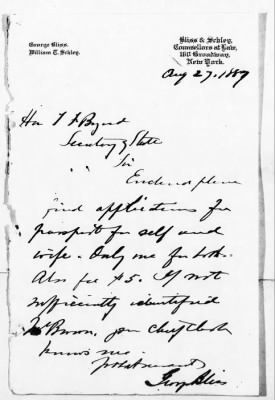 George Bliss.
William T. Schley.
Bliss & Schley,
Counsellors at Law,
160 Broadway,
New York.
Aug 27, 1887
Hon T F Bayard
Secretary of State
Sir
Enclosed please
find applications for
passport for self and
wife. Only one for both.
Also fee $5. If not
sufficiently identified
Mr Brown, your chief clerk
knows me.
George Bliss